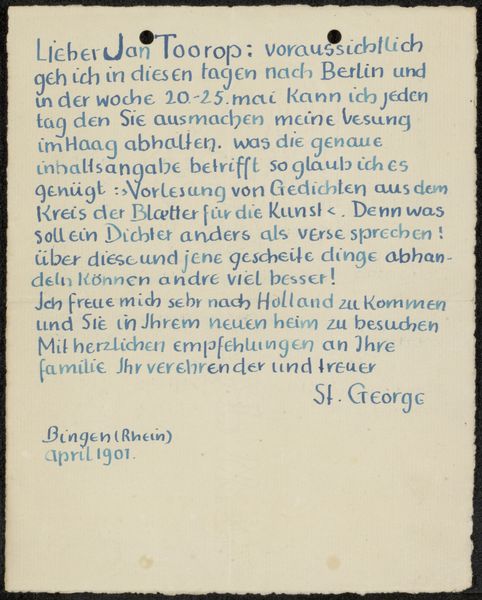 Lieber Jan Toorop: voraussichtlich
geh ich in diesen tagen nach Berlin und
in der woche 20.-25. mai kann ich jeden
tag den Sie ausmachen meine Vesung
im Haag abhalten. was die genaue
inhaltsangabe betrifft so glaub ich es
genügt :›Vorlesung von Gedichten aus dem
Kreis der Blætter für die Kunst‹. Denn was
soll ein Dichter anders als verse sprechen!
über diese und jene gescheite dinge abhan-
deln können andre viel besser!
Ich freue mich sehr nach Holland zu kommen
und Sie in Ihrem neuen heim zu besuchen
Mit herzlichen empfehlungen an Ihre
familie Ihr verehrender und treuer
St. George
Bingen (Rhein)
april 1901.